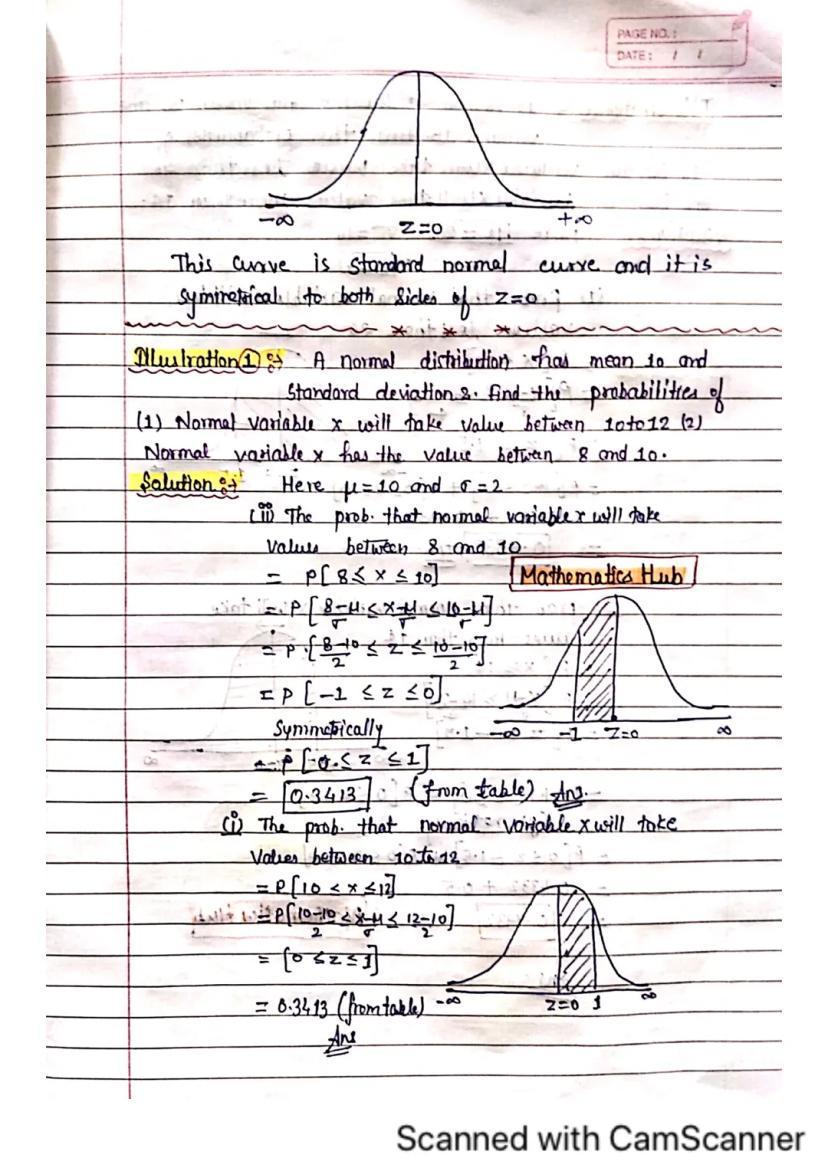 PAGE NO. :
DATE : / /
-∞ Z=0 +∞
This curve is standard normal curve and it is
symmetrical to both sides of Z=0 ;
Illustration ① :- A normal distribution has mean 10 and
standard deviation 2. find the probabilities of
(1) Normal variable x will take value between 10 to 12 (2)
Normal variable x has the value between 8 and 10.
Solution :- Here μ=10 and σ=2
(ii) The prob. that normal variable x will take
values between 8 and 10
= P[ 8 ≤ x ≤ 10]
Mathematics Hub
= P [ 8-μ/σ ≤ x-μ/σ ≤ 10-μ/σ ]
= P [ 8-10/2 ≤ z ≤ 10-10/2 ]
= P [ -1 ≤ z ≤ 0]
-∞ -1 Z=0 ∞
Symmetrically
= P [ 0 ≤ z ≤ 1]
= 0.3413 (from table) Ans.
(i) The prob. that normal variable x will take
Values between 10 to 12
= P[10 < x ≤ 12]
= P[ 10-10/2 ≤ x-μ/σ ≤ 12-10/2 ]
= [0 ≤ z ≤ 1]
-∞ Z=0 1 ∞
= 0.3413 (from table)
Ans
Scanned with CamScanner